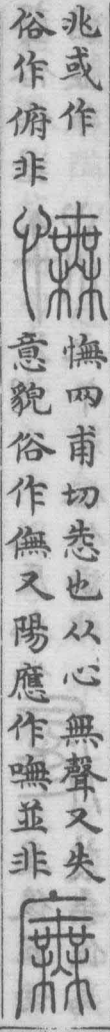 兆或作
俗作俯非
憮
憮网甫切㤅也从心無聲又失
意貌俗作㒇又陽應作嘸並非
廡